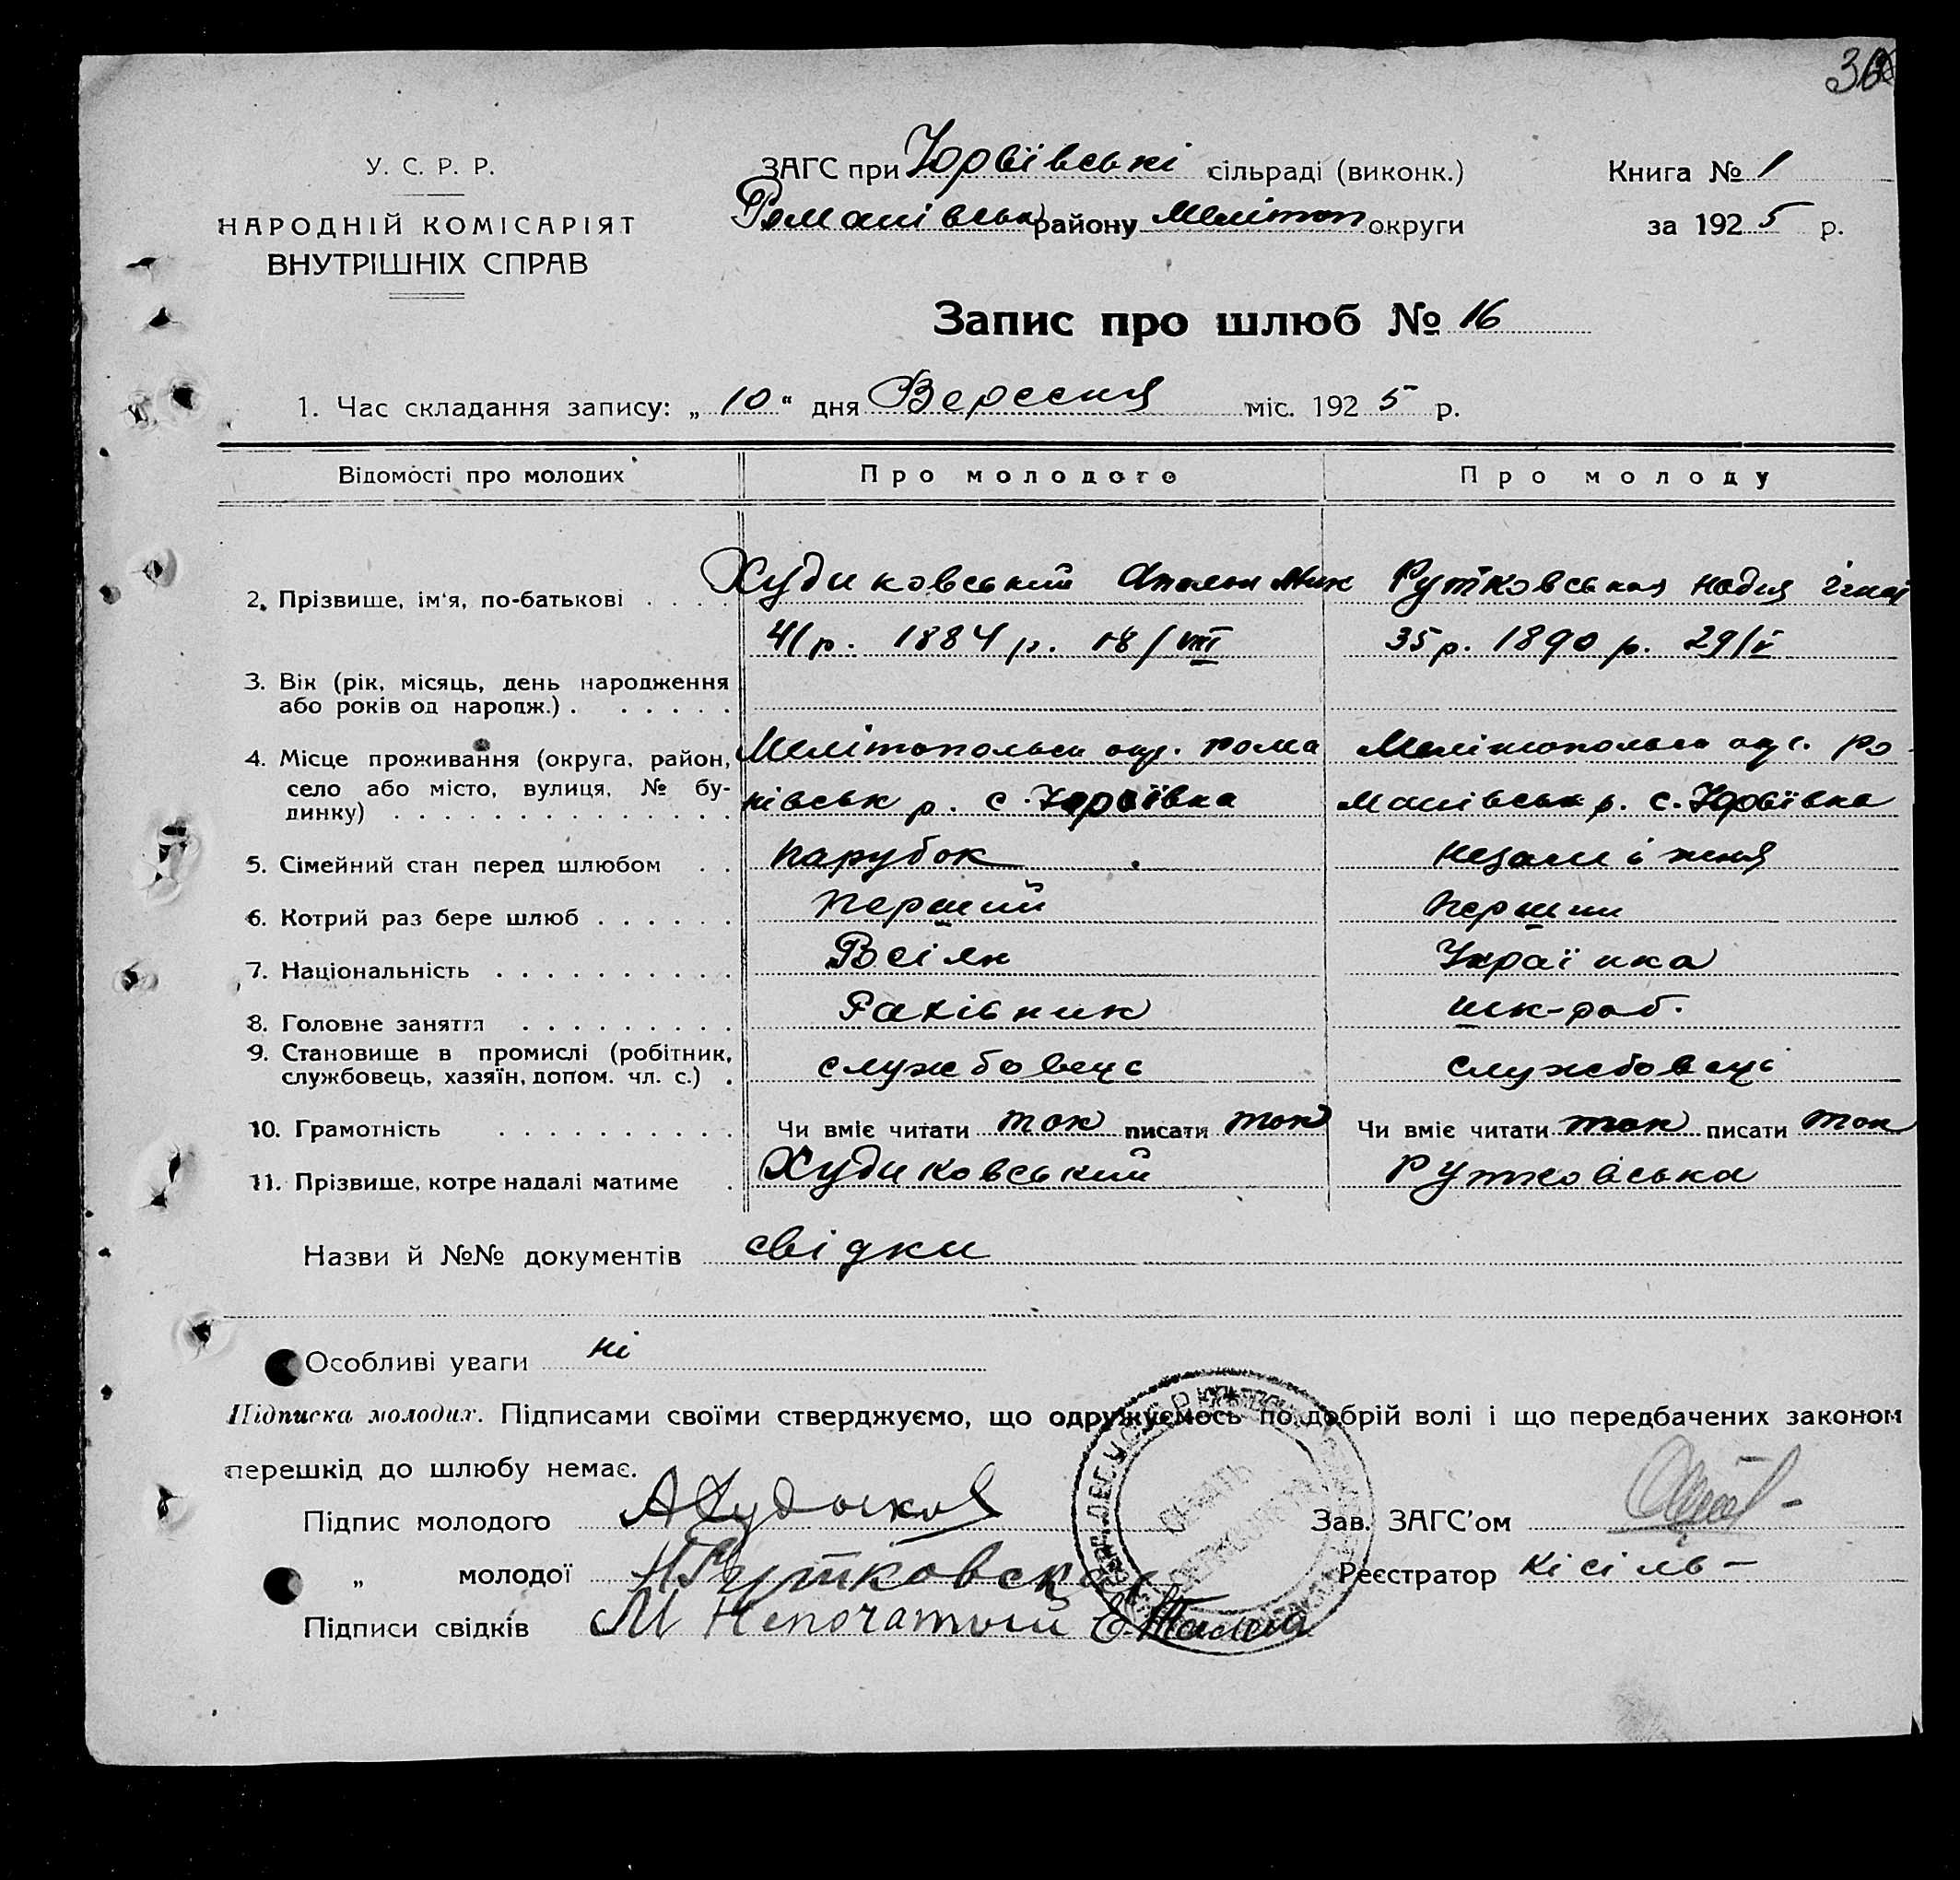 У. С. Р. Р.
НАРОДНІЙ КОМІСАРІЯТ
ВНУТРІШНІХ СПРАВ
ЗАГС при Юрвївські сільраді (виконк.)
Романівськ району Мелітоп округи
Книга № 1
за 1925 р.
Запис про шлюб № 16
1. Час складання запису: „ 10 “ дня Вересня міс. 1925 р.
Відомості про молодих
Про молодого
Про молоду
2. Прізвище, ім'я, по-батькові
Худиковський Мих
Рутковськая Надия
3. Вік (рік, місяць, день народження
або років од народж.)
41 р. 1884 р. 18/VIII
35 р. 1890 р. 29/V
4. Місце проживання (округа, район,
село або місто, вулиця, № бу-
динку)
Мелітопольськ окр. Рома
нівськ р. с. Юрвївка
Мелітопольськ окр. Ро-
манівськ р. с. Юрвївка
5. Сімейний стан перед шлюбом
парубок
незаміжня
6. Котрий раз бере шлюб
Перший
Перший
7. Національність
Росіян
Українка
8. Головне заняття
Рахівник
шк-роб.
9. Становище в промислі (робітник,
службовець, хазяїн, допом. чл. с.)
службовець
службовець
10. Грамотність
Чи вміє читати так писати так
Чи вміє читати так писати так
11. Прізвище, котре надалі матиме
Худиковський
Рутковська
Назви й №№ документів свідки
Особливі уваги ні
Підписка молодих. Підписами своїми стверджуємо, що одружуємось по добрій волі і що передбачених законом
перешкід до шлюбу немає.
Підпис молодого
Зав. ЗАГС'ом
„ молодої НРутковска
Реєстратор Кісіль
Підписи свідків М Непочатый Е.